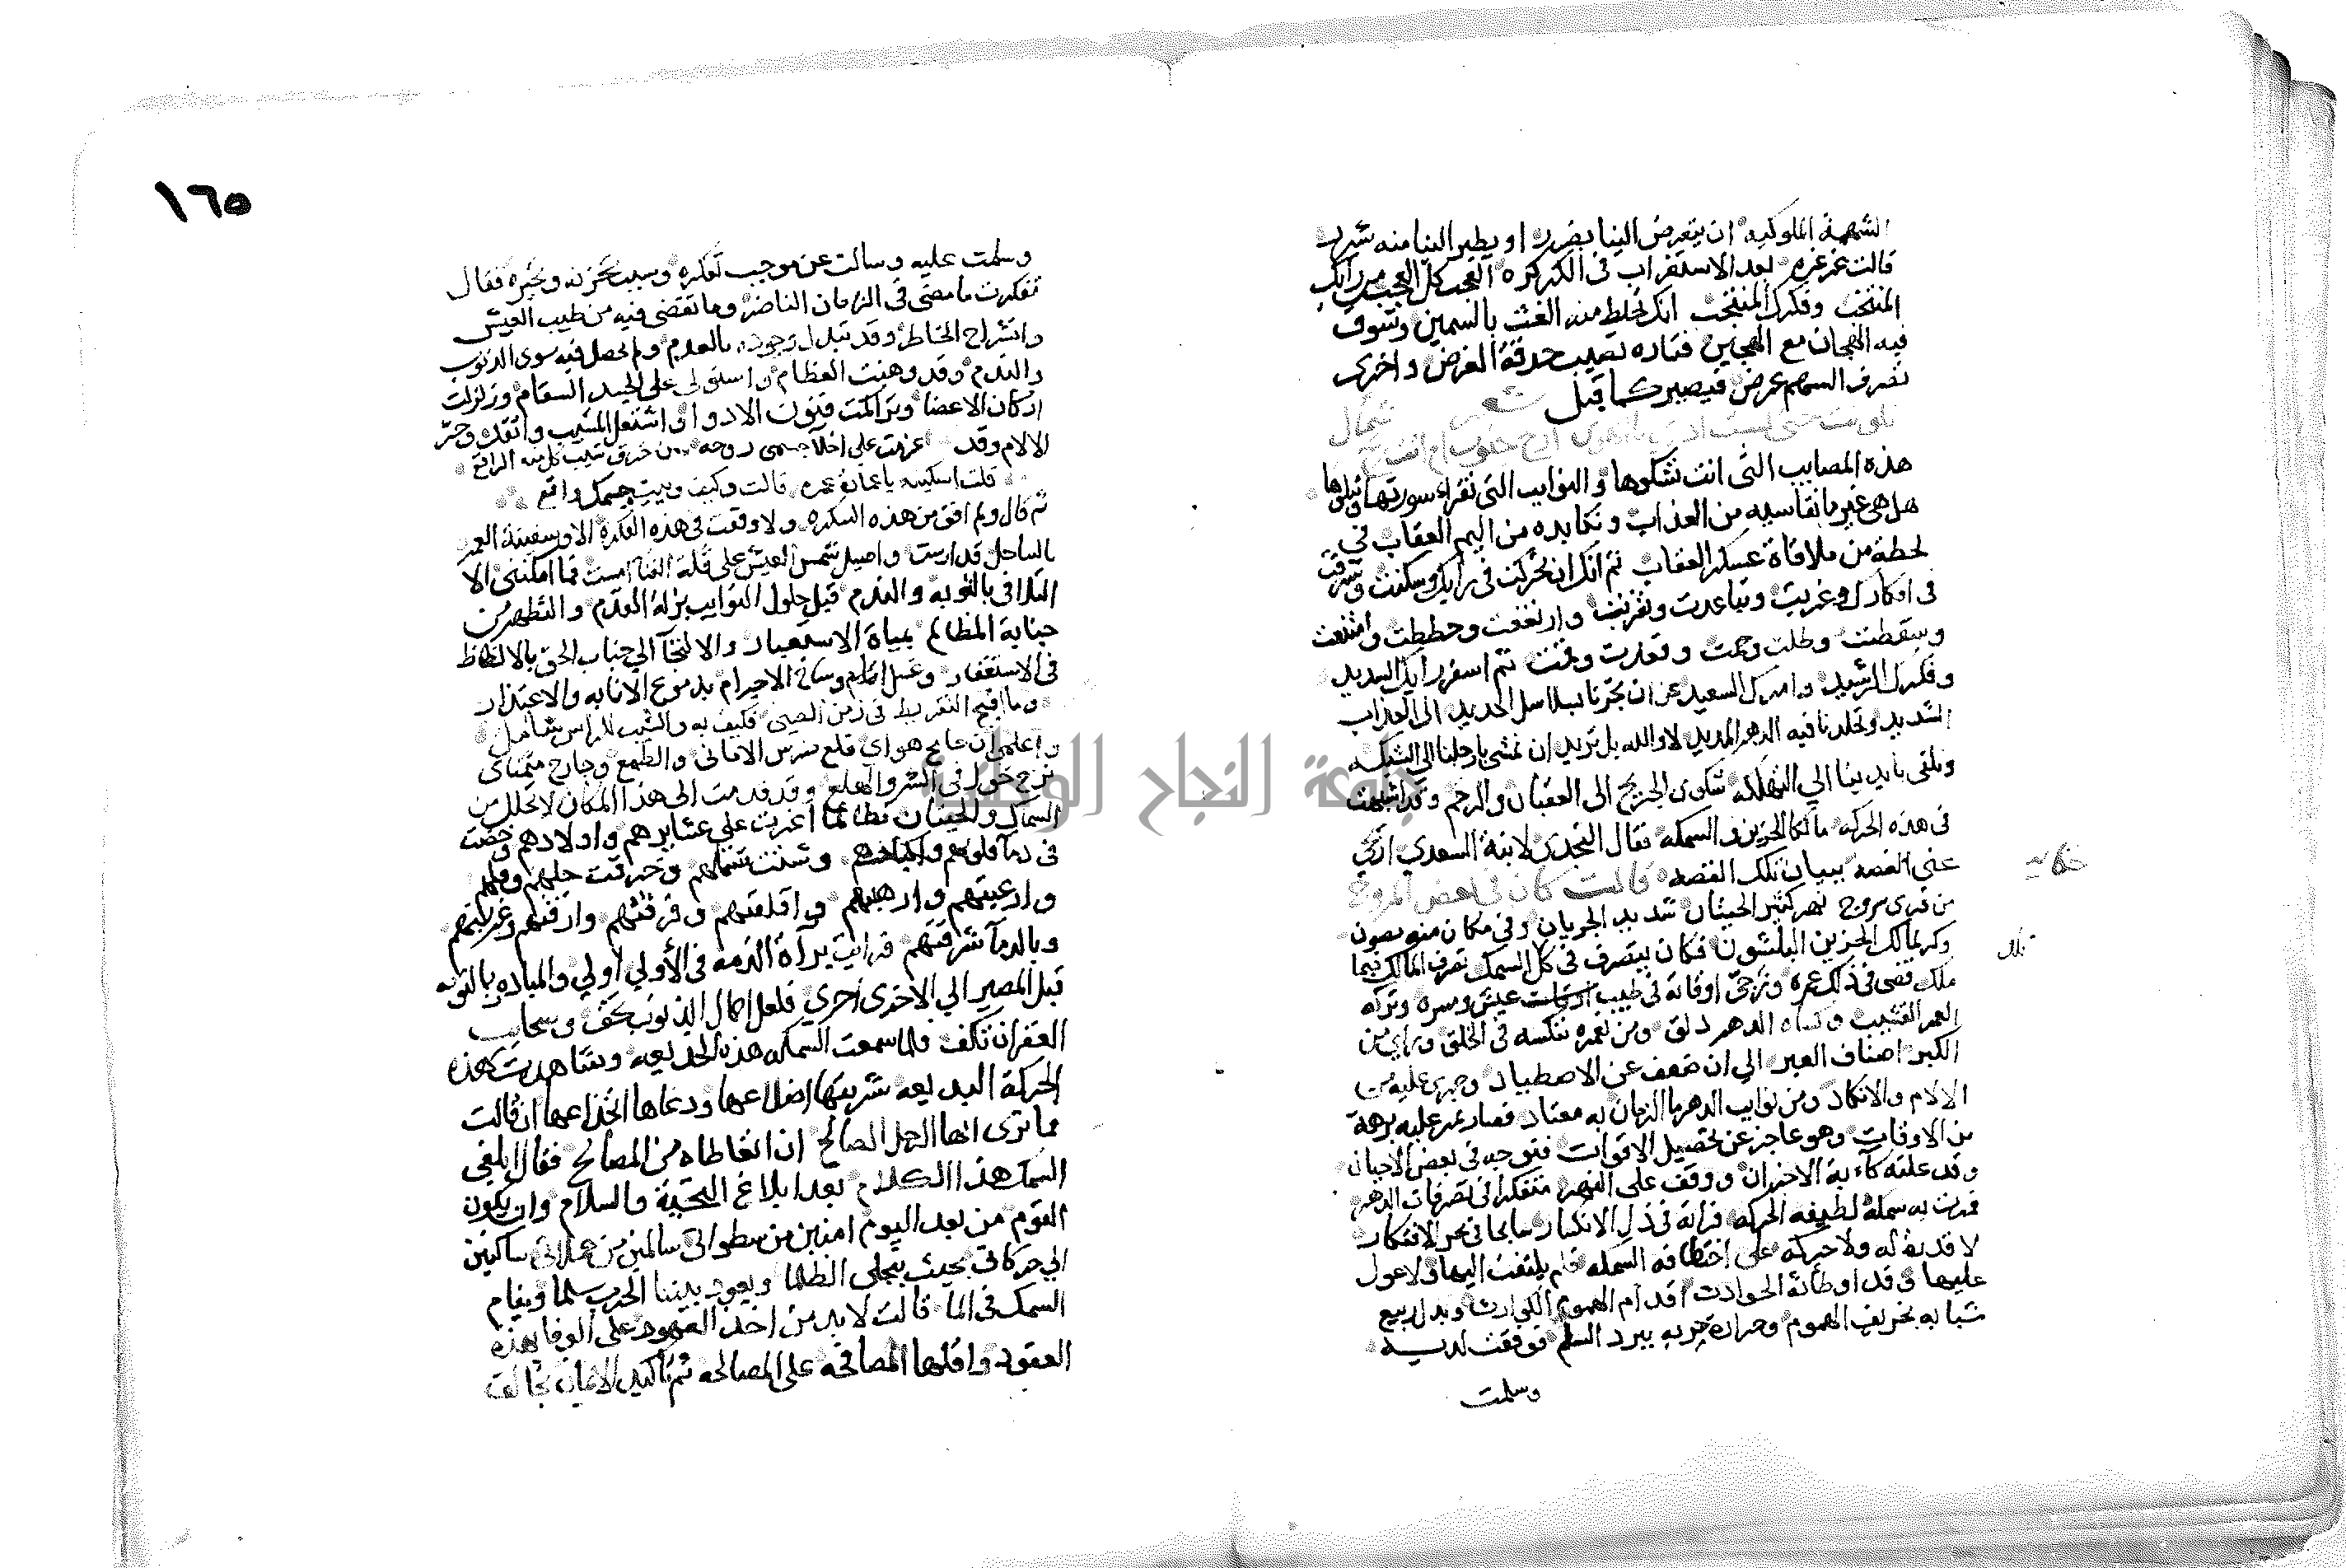 الشهمة الملوكيه ان يتعرض الينا بضرر او يطير الينا منه شرر
قالت غرغره بعد الاستغراب فى الكركره العجب كل العجب من رايك
المنتخب وفكرك المنتجب انك تخلط منه الغث بالسمين وتسوق
فيه الهجان مع الهجين فتاره تصيب حدقة الغرض واخرى
تصرف السهم عرض فيصير كما قيل
شعر
تلونت حتى لست ادري
شمال
هذه المصايب التى انت تشكوها والنوايب التى تقراء سورتها وتتلوها
هل هى غير ما نقاسيه من العذاب ونكابده من اليم العقاب فى
لحظة من ملاقاة عسكر العقاب ثم انك ان تحركت فى رايك وسكنت وشرقت
فى افكارك وغربت وتباعدت وتقربت وارتفعت وحططت وامتنعت
وسقطت وطلت وحمت وقعدت وقمت ثم اسفر رايك السديد
وفكرك الرشيد وامرك السعيد عن ان تجرنا بسلاسل الحديد الى العذاب
الشديد وتخلدنا فيه الدهر المديد لا والله بل تريد ان نمشى بارجلنا الى الشبكه
ونلقى بايدينا الي التهلكه شكوى الجريح الى العقبان والرخم وقد اشبهت
فى هذه الحركه مالكا الحزين والسمكه فقال النجدى لابنة السعدي ازيحي
حكايه
عنى الغصه ببيان تلك القصه قالت كان فى بعض المروج
من قرى سروج نهر كثير الحيتان شديد الجريان وفى مكان منه مصون
وكر لمالك الحزين البلشون فكان يتصرف فى كل السمك تصرف المالك فيما
ملك قضى فى ذلك عمره وزجى اوقاته فى طيب عيش ومسره وتركه
العمر القشيب وكساه الدهر دلق ومن نعمره ننكسه فى الخلق وراي من
الكبر اصناف العبر الي ان ضعف عن الاصطياد وجرى عليه من
الالام والانكاد ومن نوايب الدهر ما الزمان به معتاد فصار تمر عليه برهة
من الاوقات وهو عاجز عن تحصيل الاقوات فتوجه فى بعض الاحيان
وقد علته كآبة الاحزان ووقف على النهر متفكرا فى تصرفات الدهر
فمرت به سمكة لطيفه الحركه فراته فى ذل الانكسار سابحا فى بحر الافتكار
لا قدرة له ولا حركه على اختطافه السمكه فلم يلتفت اليها ولا عول
عليها وقد اوطاته الحوادث اقدام الهموم الكوارث وبدل ربيع
شبابه بخريف الهموم وحرارة حربه ببرد السلم فوقفت لديه
وسلمت
١٦٥
وسلمت عليه وسالت عن موجب تفكره وسبب تحزنه وتحيره فقال
تفكرت ما مضى فى الزمان الناضر وما تقضى فيه من طيب العيش
وانشراح الخاطر وقد تبدل وجوده بالعدم ولم يحصل فيه سوى الذنوب
والندم وقد وهنت العظام واستولى على الجسد السقام وتزلزلت
اركان الاعضا وتراكمت فنون الادوا واشتعل المشيب واتقد وحر
الالام وقد عزمت على اخلا جسمى روحه من خرق شيب كل منه الراقع
قلت اسكنيه يا عمارة عمره قالت وكيف وبيت جسمك واقع
ثم قال ولم افق من هذه السكره ولا وقعت فى هذه الفكرة الا وسفينة العمر
بالساحل قد ارست واصيل شمس العيش على قلة الفنا امست فما امكننى الا
التلافى بالتوبة والندم قبل حلول النوايب بزلة القدم والتطهر من
جنابة المظالم بمياه الاستعبار والالتجآ الي جناب الحق بالالظاظ
فى الاستغفار وغسل وساخ الاجرام بدموع الانابه والاعتذار
وما اقبح التفريط فى زمن الصبى فكيف به والشيب للراس شامل
واعلمي ان عايج هواي قلع ضرس الامانى والطمع وجارح متمناى
نزح فى الشر والهلع وقد قدمت الى هذا المكان لاتحلل من
السمك والحيتان فطالما اغرت على عشايرهم واولادهم وخضت
فى دمآ قلوبهم واكبادهم وشتت شملهم وخرقت جلهم وقلهم
وارعبتهم وارهبتهم واقلقتهم وفرقتهم وارقتهم وغربتهم
وبالدمآ شرقتهم فرايت برآة الذمه فى الأولي اولي والمبادره بالتوبه
قبل المصير الي الاخرى احري فلعل احمال الذنوب تخف وسحايب
الغفران تكف فلما سمعت السمكه هذه الخديعه وشاهدت هذه
الحركة البديعه تشربتها اضلاعها ودعاها انخداعها ان قالت
فما ترى ايها الرجل الصالح ان اتعاطاه من المصالح فقال ابلغي
السمك هذا الكلام بعد ابلاغ التحية والسلام وان يكون
القوم من بعد اليوم امنين من سطواتى سالمين من حملاتى ساكنين
الي حركاتى بحيث يتجلى الظلما ويعود بيننا الحرب سلما وينام
السمك فى الما قالت لا بد من اخذ العهود على الوفا بهذه
العقود واقلها المصافحه على المصالحه ثم تاكيد الايمان